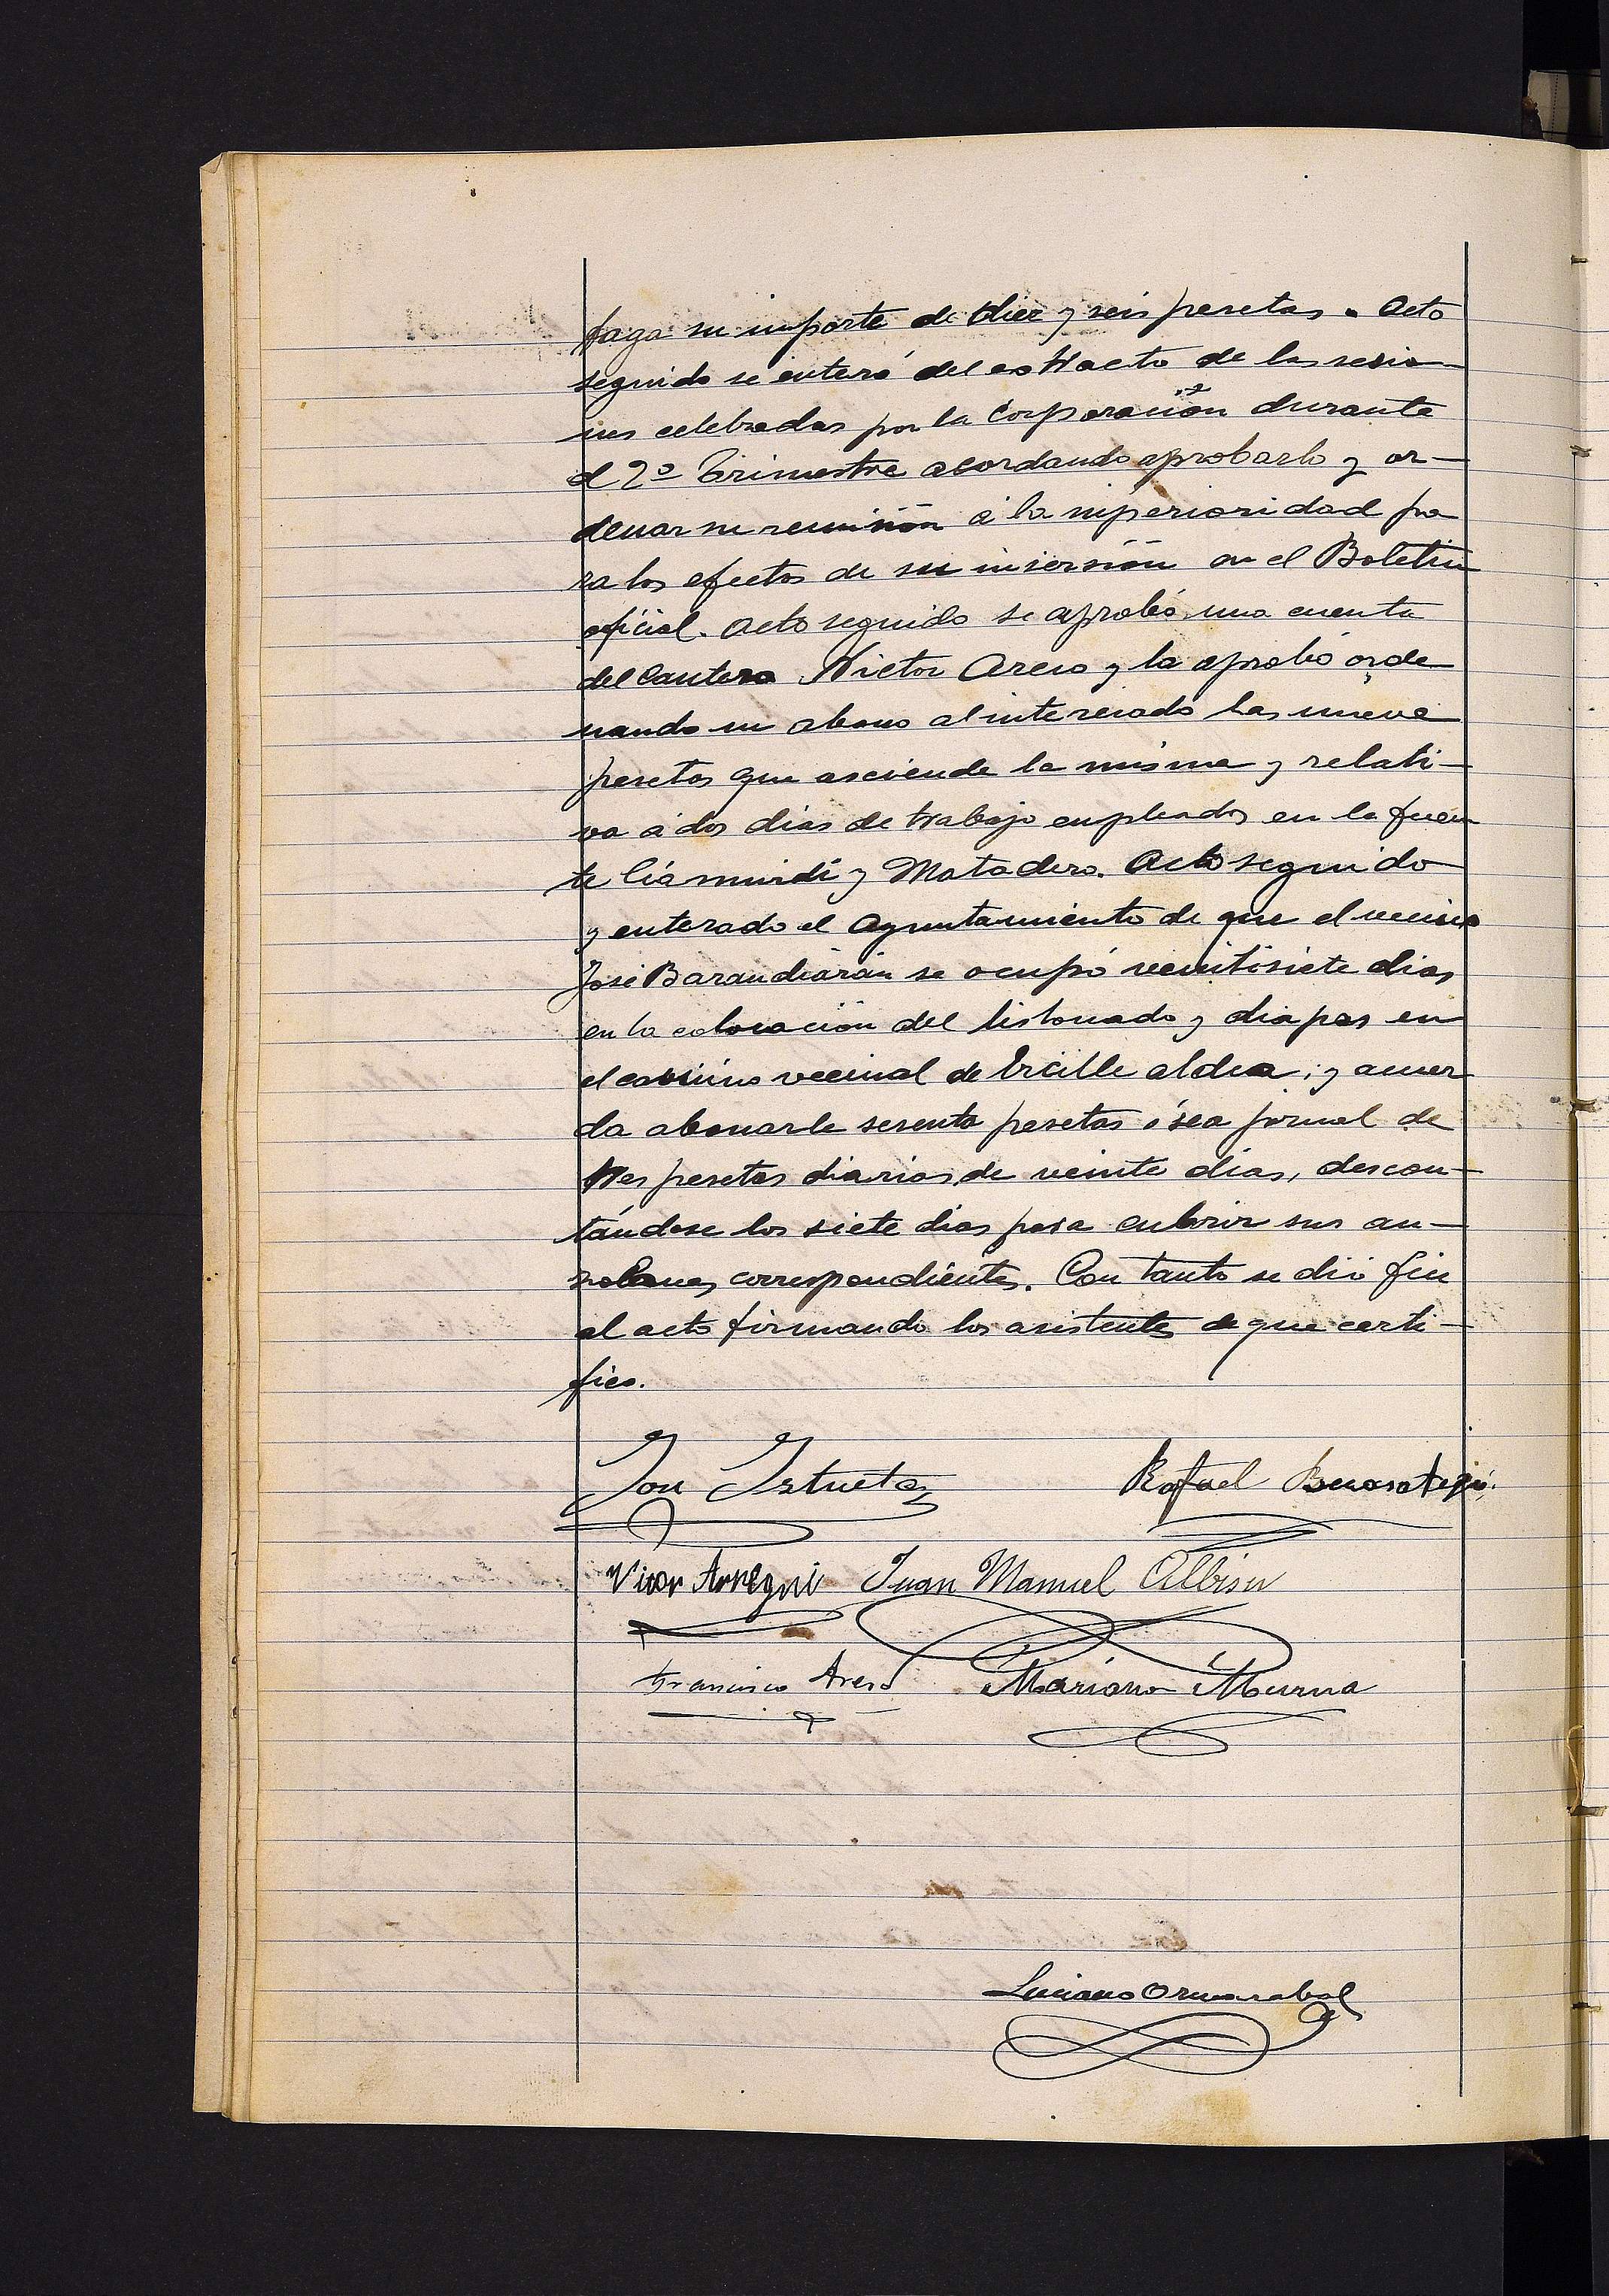 faga su importe de diez y seis pesetas. Acto
seguido se enteró del extracto de las sesio-
nes celebradas por la Corporación durante
el 2º Trimestre acordando aprobarlo y or-
denar su remisión á la superioridad pa
ra los efectos de su inserción en el Boletin
oficial. Acto seguido se aprobó una cuenta
del Cantero Victor Areso y la aprobó orde
nando su abono al interesado las nueve
pesetas que asciende la misma y relati-
va á dos dias de trabajo empleados en la fuen
te y Matadero. Acto seguido
y enterado el Ayuntamiento de que el vecino
José Barandiarán se ocupó veintisiete dias
en la colocación del listonado y chapas en
el camino vecinal de aldea; y acuer
da abonarle sesenta pesetas ó sea jornal de
tres pesetas diarias de veinte dias, descon-
tándose los siete dias para cubrir sus au-
zolanes correspondientes. Con tanto se dió fin
al acto firmando los asistentes de que certi-
fico.
Jon Iztueta Rafael Berasategui
Victor Arregui Juan Manuel Albisu
Francisco Areso Mariano Murua
Luciano Ormazabal